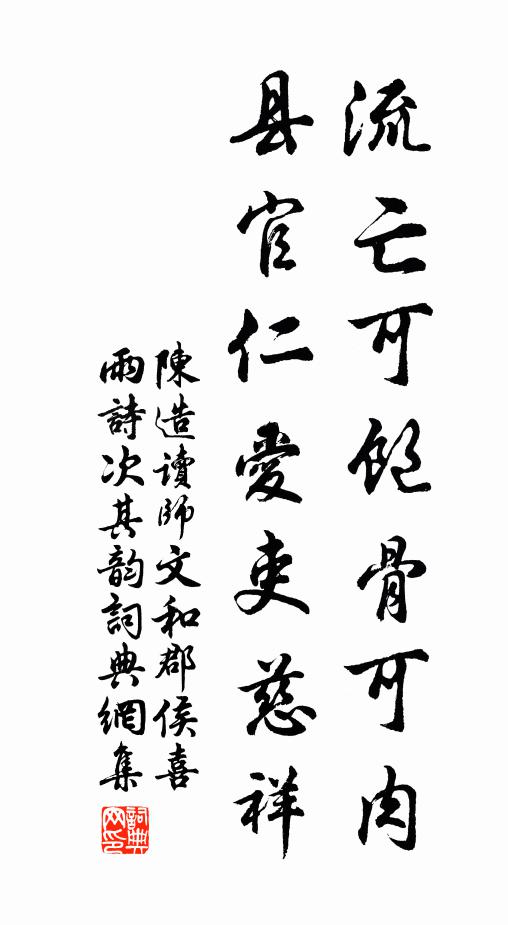 流亡可飽骨可肉
县官仁愛吏慈祥
陳造讀師文和郡侯喜
雨詩次其韵詞典網集
詞典网印